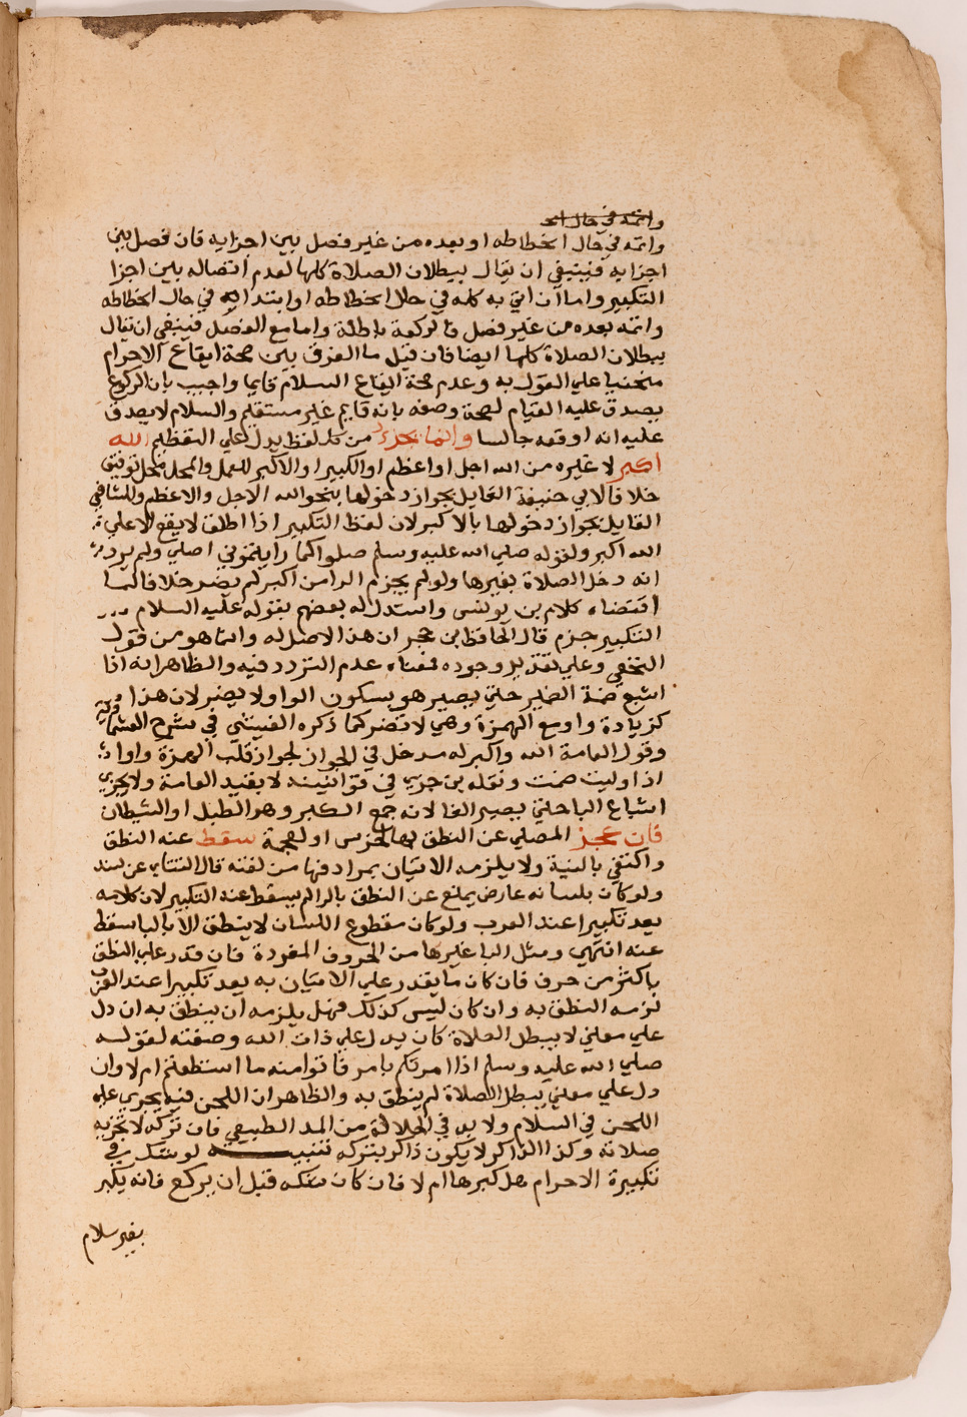 واتمه في حال انح
واتمه في حال انحطاطه او بعده من غير فصل بين اجزايه فان فصل بين
اجزايه فينبغي ان يقال ببطلان الصلاة كلها لعدم اتصاله بين اجزا
التكبير واما ان اتي به كله في حال انحطاطه او ابتدا به في حال انحطاطه
واتمه بعده من غير فصل فالركعة باطلة واما مع الفصل فينبغي ان يقال
ببطلان الصلاة كلها ايضا فان قيل ما الفرق بين صحة ايقاع الاحرام
منحنيا علي القول به وعدم صحة ايقاع السلام قايما واجيب بان الركوع
يصدق عليه القيام لصحة وصفه بانه قايم غير مستقيم والسلام لا يصدق
عليه انه اوقعه جالسا وانما يجزء من كل لفظ يدل علي التعظيم الله
اكبر لا غيره من الله اجل او اعظم او الكبير او الاكبر للعمل والمحل محل توقيف
خلافا لابي حنيفة القايل بجواز دخولها بنحو الله الاجل والاعظم وللشافعي
القايل بجواز دخولها بالاكبر لان لفظ التكبير اذا اطلق لا يقع الا علي
الله اكبر ولقوله صلي الله عليه وسلم صلوا كما رايتموني اصلي ولم يرد
انه دخل الصلاة بغيرها ولو لم يجزم الرا من اكبر لم يضر خلافا لما
اقتضاه كلام بن يونس واستدل له بعضهم بقوله عليه السلام
التكبير جزم قال الحافظ بن حجر ان هذا لا اصل له وانما هو من قول
النخعي وعلي تقدير وجوده فمعناه عدم التردد فيه والظاهر انه اذا
اشبع ضمة الضمير حتي يصير هو بسكون الواو لا يضر لان هذا
كزيادة واو مع الهمزة وهي لا تضر كما ذكره الفيشي في شرح العشماوية
وقول العامة الله واكبر له مدخل في الجواز لجواز قلب الهمزة واوا
اذا وليت ضمت ونقله بن جزي في قوانينه لا بقيد العامة ولا يجزي
اشباع البا حتي يصير الفا لانه جمع الكبر وهو الطبل او الشيطان
فان عجز المصلي عن النطق بها لخرس او لعجمة سقط عنه النطق
واكتفي بالنية ولا يلزمه الاتيان بمرادفها من لغته قال التتاي عن سند
ولو كان بلسانه عارض يمنع عن النطق بالرا لم يسقط عنه التكبير لان كلامه
يعد تكبيرا عند العرب ولو كان مقطوع اللسان لا ينطق الا بالبا سقط
عنه انتهي ومثل البا غيرها من الحروف المفردة فان قدر علي النطق
باكثر من حرف فان كان ما يقدر علي الاتيان به يعد تكبيرا عند العرب
لزمه النطق به وان كان ليس كذلك فهل يلزمه ان ينطق به ان دل
علي معني لا يبطل الصلاة كان يدل علي ذات الله وصفته لقوله
صلي الله عليه وسلم اذا امرتكم بامر فاتوا منه ما استطعتم ام لا وان
دل علي معني يبطل الصلاة لم ينطق به والظاهر ان اللحن فيه يجري عليه
اللحن في السلام ولا بد في الجلالة من المد الطبيعي فان تركه لا تجزيه
صلاته وكذا الذاكر لا يكون ذاكرا بتركه تنبيه لو شك في
تكبيرة الاحرام هل كبرها ام لا فان كان شكه قبل ان يركع فانه يكبر
بغير سلام